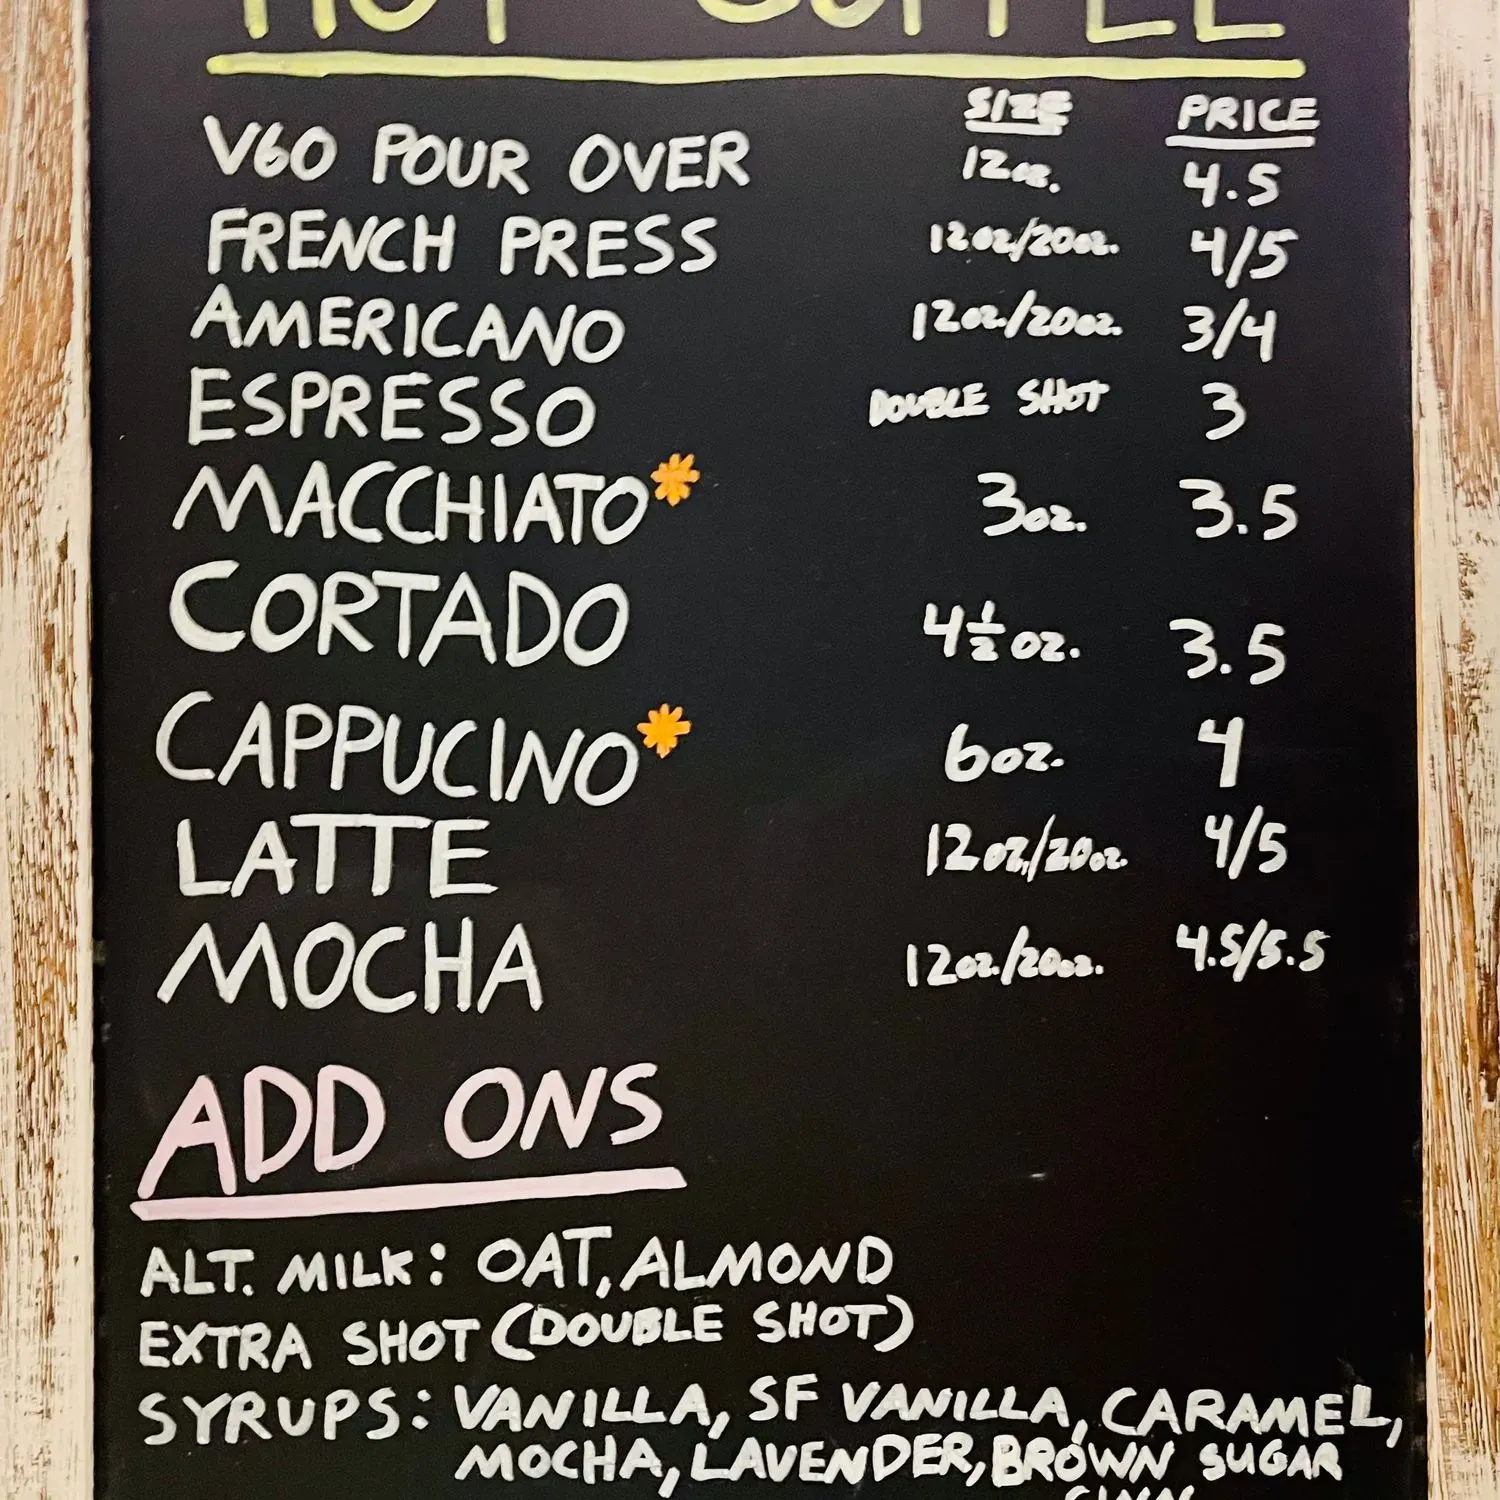 HOT COFFEE
SIZE PRICE
V60 POUR OVER 12oz. 4.5
FRENCH PRESS 12oz/20oz. 4/5
AMERICANO 12oz./20oz. 3/4
ESPRESSO DOUBLE SHOT 3
MACCHIATO* 3oz. 3.5
CORTADO 4½oz. 3.5
CAPPUCINO* 6oz. 4
LATTE 12oz./20oz. 4/5
MOCHA 12oz./20oz. 4.5/5.5
ADD ONS
ALT. MILK: OAT, ALMOND
EXTRA SHOT (DOUBLE SHOT)
SYRUPS: VANILLA, SF VANILLA, CARAMEL,
MOCHA, LAVENDER, BROWN SUGAR